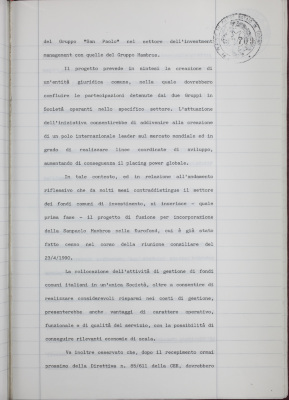 del Gruppo "San Paolo" nel settore dell'investment
management con quelle del Gruppo Hambros.
Il progetto prevede in sintesi la creazione di
un'entità giuridica comune, nella quale dovrebbero
confluire le partecipazioni detenute dai due Gruppi in
Società operanti nello specifico settore. L'attuazione
dell'iniziativa consentirebbe di addivenire alla creazione
di un polo internazionale leader sul mercato mondiale ed in
grado di realizzare linee coordinate di sviluppo,
aumentando di conseguenza il placing power globale.
In tale contesto, ed in relazione all'andamento
riflessivo che da molti mesi contraddistingue il settore
dei fondi comuni di investimento, si inserisce - quale
prima fase - il progetto di fusione per incorporazione
della Sanpaolo Hambros nella Eurofond, cui è già stato
fatto cenno nel corso della riunione consiliare del
23/4/1990.
La collocazione dell'attività di gestione di fondi
comuni italiani in un'unica Società, oltre a consentire di
realizzare considerevoli risparmi nei costi di gestione,
presenterebbe anche vantaggi di carattere operativo,
funzionale e di qualità del servizio, con la possibilità di
conseguire rilevanti economie di scala.
Va inoltre osservato che, dopo il recepimento ormai
prossimo della Direttiva n. 85/611 della CEE, dovrebbero